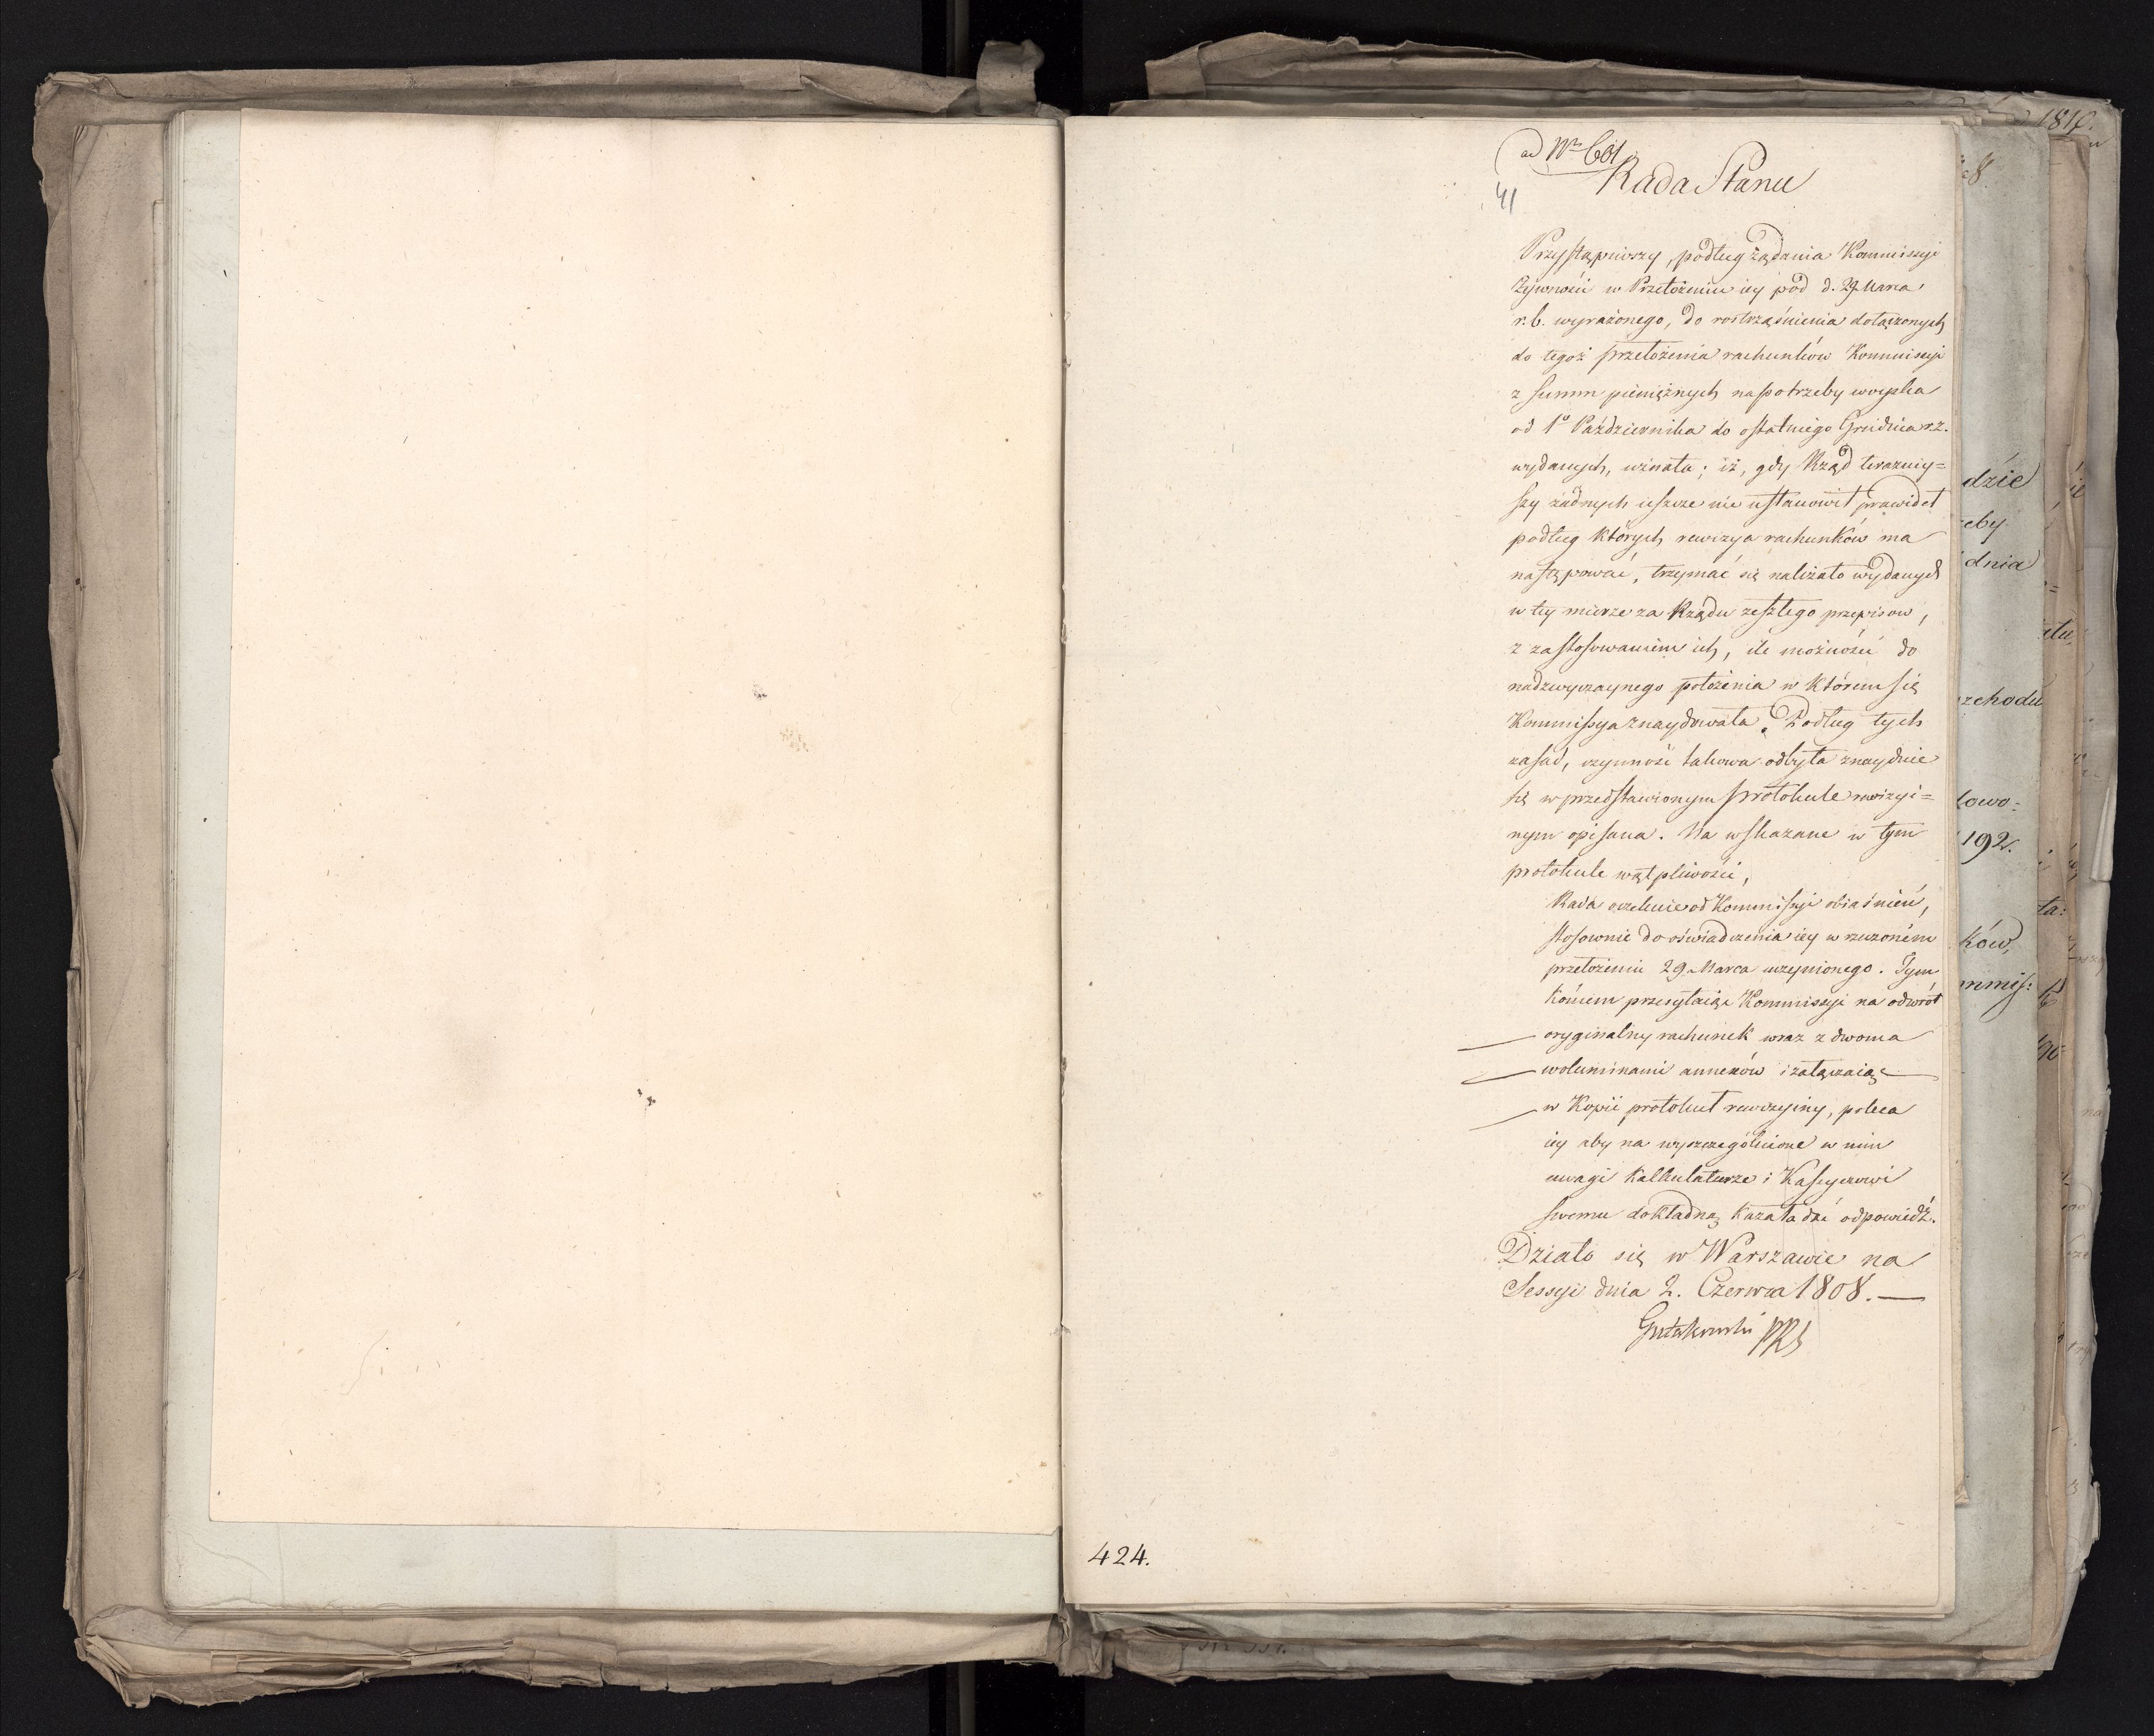 ad Nro 601
41
Rada Stanu
Przystąpiwszy, podług żądania Kommissyi
Żywności w Przełożeniu iey pod d. 29. Marca
r. b. wyrażonego, do rostrząśnienia dołączonych
do tegoż przełożenia rachunków Kommissyi
z summ pieniężnych na potrzeby woyska
od 1o Października do ostatniego Grudnia r. z.
wydanych, uznała; iż, gdy Rząd teraźniy=
szy żadnych ieszcze nie ustanowił prawideł
podług których rewizya rachunków ma
następować, trzymać się należało wydanych
w tey mierze za Rządu zeszłego przepisow,
z zastosowaniem ich, ile możności do
nadzwyczaynego położenia w którem się
Kommissya znaydowała. Podług tych
zasad, czynność takowa odbyta znayduie
się w przedstawionym protokule rewizyi=
nym opisana. Na wskazane w tym
protokule wątpliwości,
Rada oczekuie od Kommissyi obiaśnień,
stosownie do oświadczenia iey w rzeczoném
przełożeniu 29. Marca uczynionego. Tym
końcem przesyłaiąc Kommissyi na odwrót
oryginalny rachunek wraz z dwoma
woluminami annexów i załączaiąc
w Kopii protokuł rewizyiny, poleca
iey aby na wyszczególnione w nim
uwagi Kalkulaturze i Kassyerowi
swemu dokładną kazała dać odpowiedź.
Działo się w Warszawie na
Sessyi dnia 2. Czerwca 1808. —
Gutakowski PRS
424.
1810.
dzie
eby
dnia
zchodu
łowo:
192.
ków,
mmis: